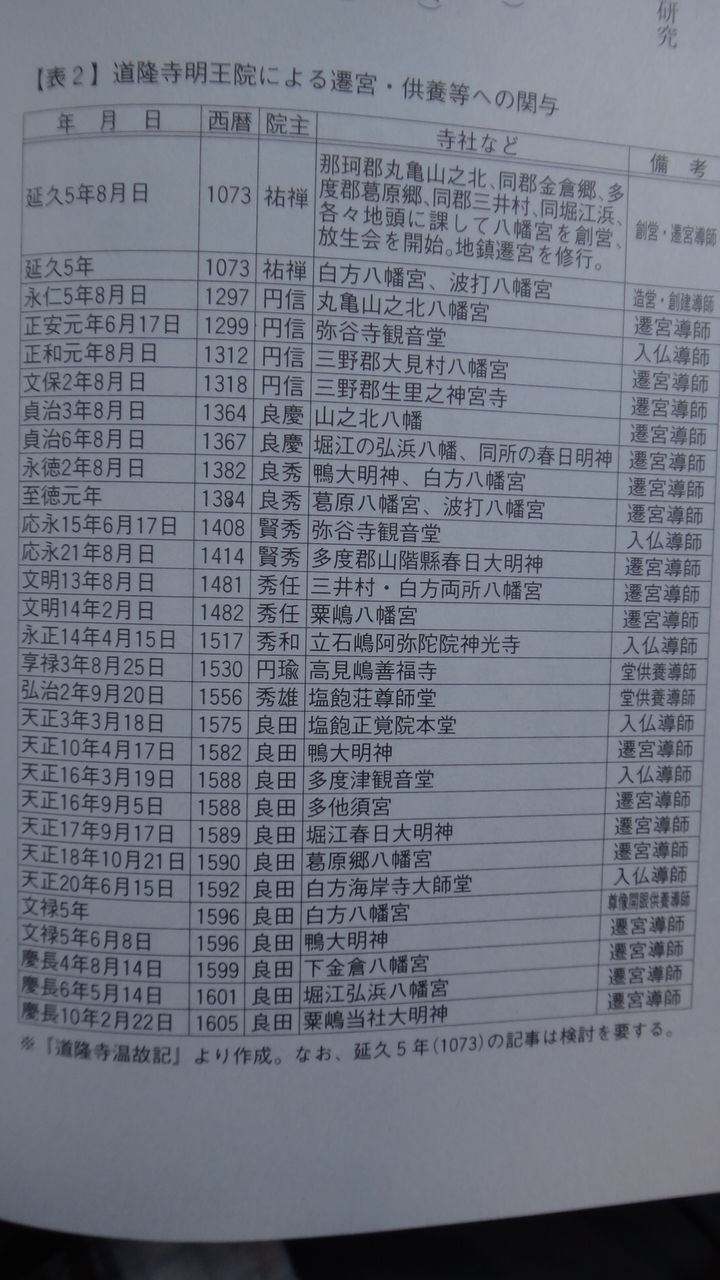 研究
【表2】道隆寺明王院による遷宮・供養等への関与
年 月 日 西暦 院主 寺社など 備 考
延久5年8月日 1073 祐禅 那珂郡丸亀山之北、同郡金倉郷、多
度郡葛原郷、同郡三井村、同堀江浜、
各々地頭に課して八幡宮を創営、
放生会を開始。地鎮遷宮を修行。 創営・遷宮導師
延久5年 1073 祐禅 白方八幡宮、波打八幡宮 造営・創建導師
永仁5年8月日 1297 円信 丸亀山之北八幡宮 遷宮導師
正安元年6月17日 1299 円信 弥谷寺観音堂 入仏導師
正和元年8月日 1312 円信 三野郡大見村八幡宮 遷宮導師
文保2年8月日 1318 円信 三野郡生里之神宮寺 遷宮導師
貞治3年8月日 1364 良慶 山之北八幡 遷宮導師
貞治6年8月日 1367 良慶 堀江の弘浜八幡、同所の春日明神 遷宮導師
永徳2年8月日 1382 良秀 鴨大明神、白方八幡宮 遷宮導師
至徳元年 1384 良秀 葛原八幡宮、波打八幡宮 遷宮導師
応永15年6月17日 1408 賢秀 弥谷寺観音堂 入仏導師
応永21年8月日 1414 賢秀 多度郡山階縣春日大明神 遷宮導師
文明13年8月日 1481 秀任 三井村・白方両所八幡宮 遷宮導師
文明14年2月日 1482 秀任 粟嶋八幡宮 遷宮導師
永正14年4月15日 1517 秀和 立石嶋阿弥陀院神光寺 入仏導師
享禄3年8月25日 1530 円瑜 高見嶋善福寺 堂供養導師
弘治2年9月20日 1556 秀雄 塩飽荘尊師堂 堂供養導師
天正3年3月18日 1575 良田 塩飽正覚院本堂 入仏導師
天正10年4月17日 1582 良田 鴨大明神 遷宮導師
天正16年3月19日 1588 良田 多度津観音堂 入仏導師
天正16年9月5日 1588 良田 多他須宮 遷宮導師
天正17年9月17日 1589 良田 堀江春日大明神 遷宮導師
天正18年10月21日 1590 良田 葛原郷八幡宮 遷宮導師
天正20年6月15日 1592 良田 白方海岸寺大師堂 入仏導師
文禄5年 1596 良田 白方八幡宮 尊像開眼供養導師
文禄5年6月8日 1596 良田 鴨大明神 遷宮導師
慶長4年8月14日 1599 良田 下金倉八幡宮 遷宮導師
慶長6年5月14日 1601 良田 堀江弘浜八幡宮 遷宮導師
慶長10年2月22日 1605 良田 粟嶋当社大明神 遷宮導師
※『道隆寺温故記』より作成。なお、延久5年(1073)の記事は検討を要する。